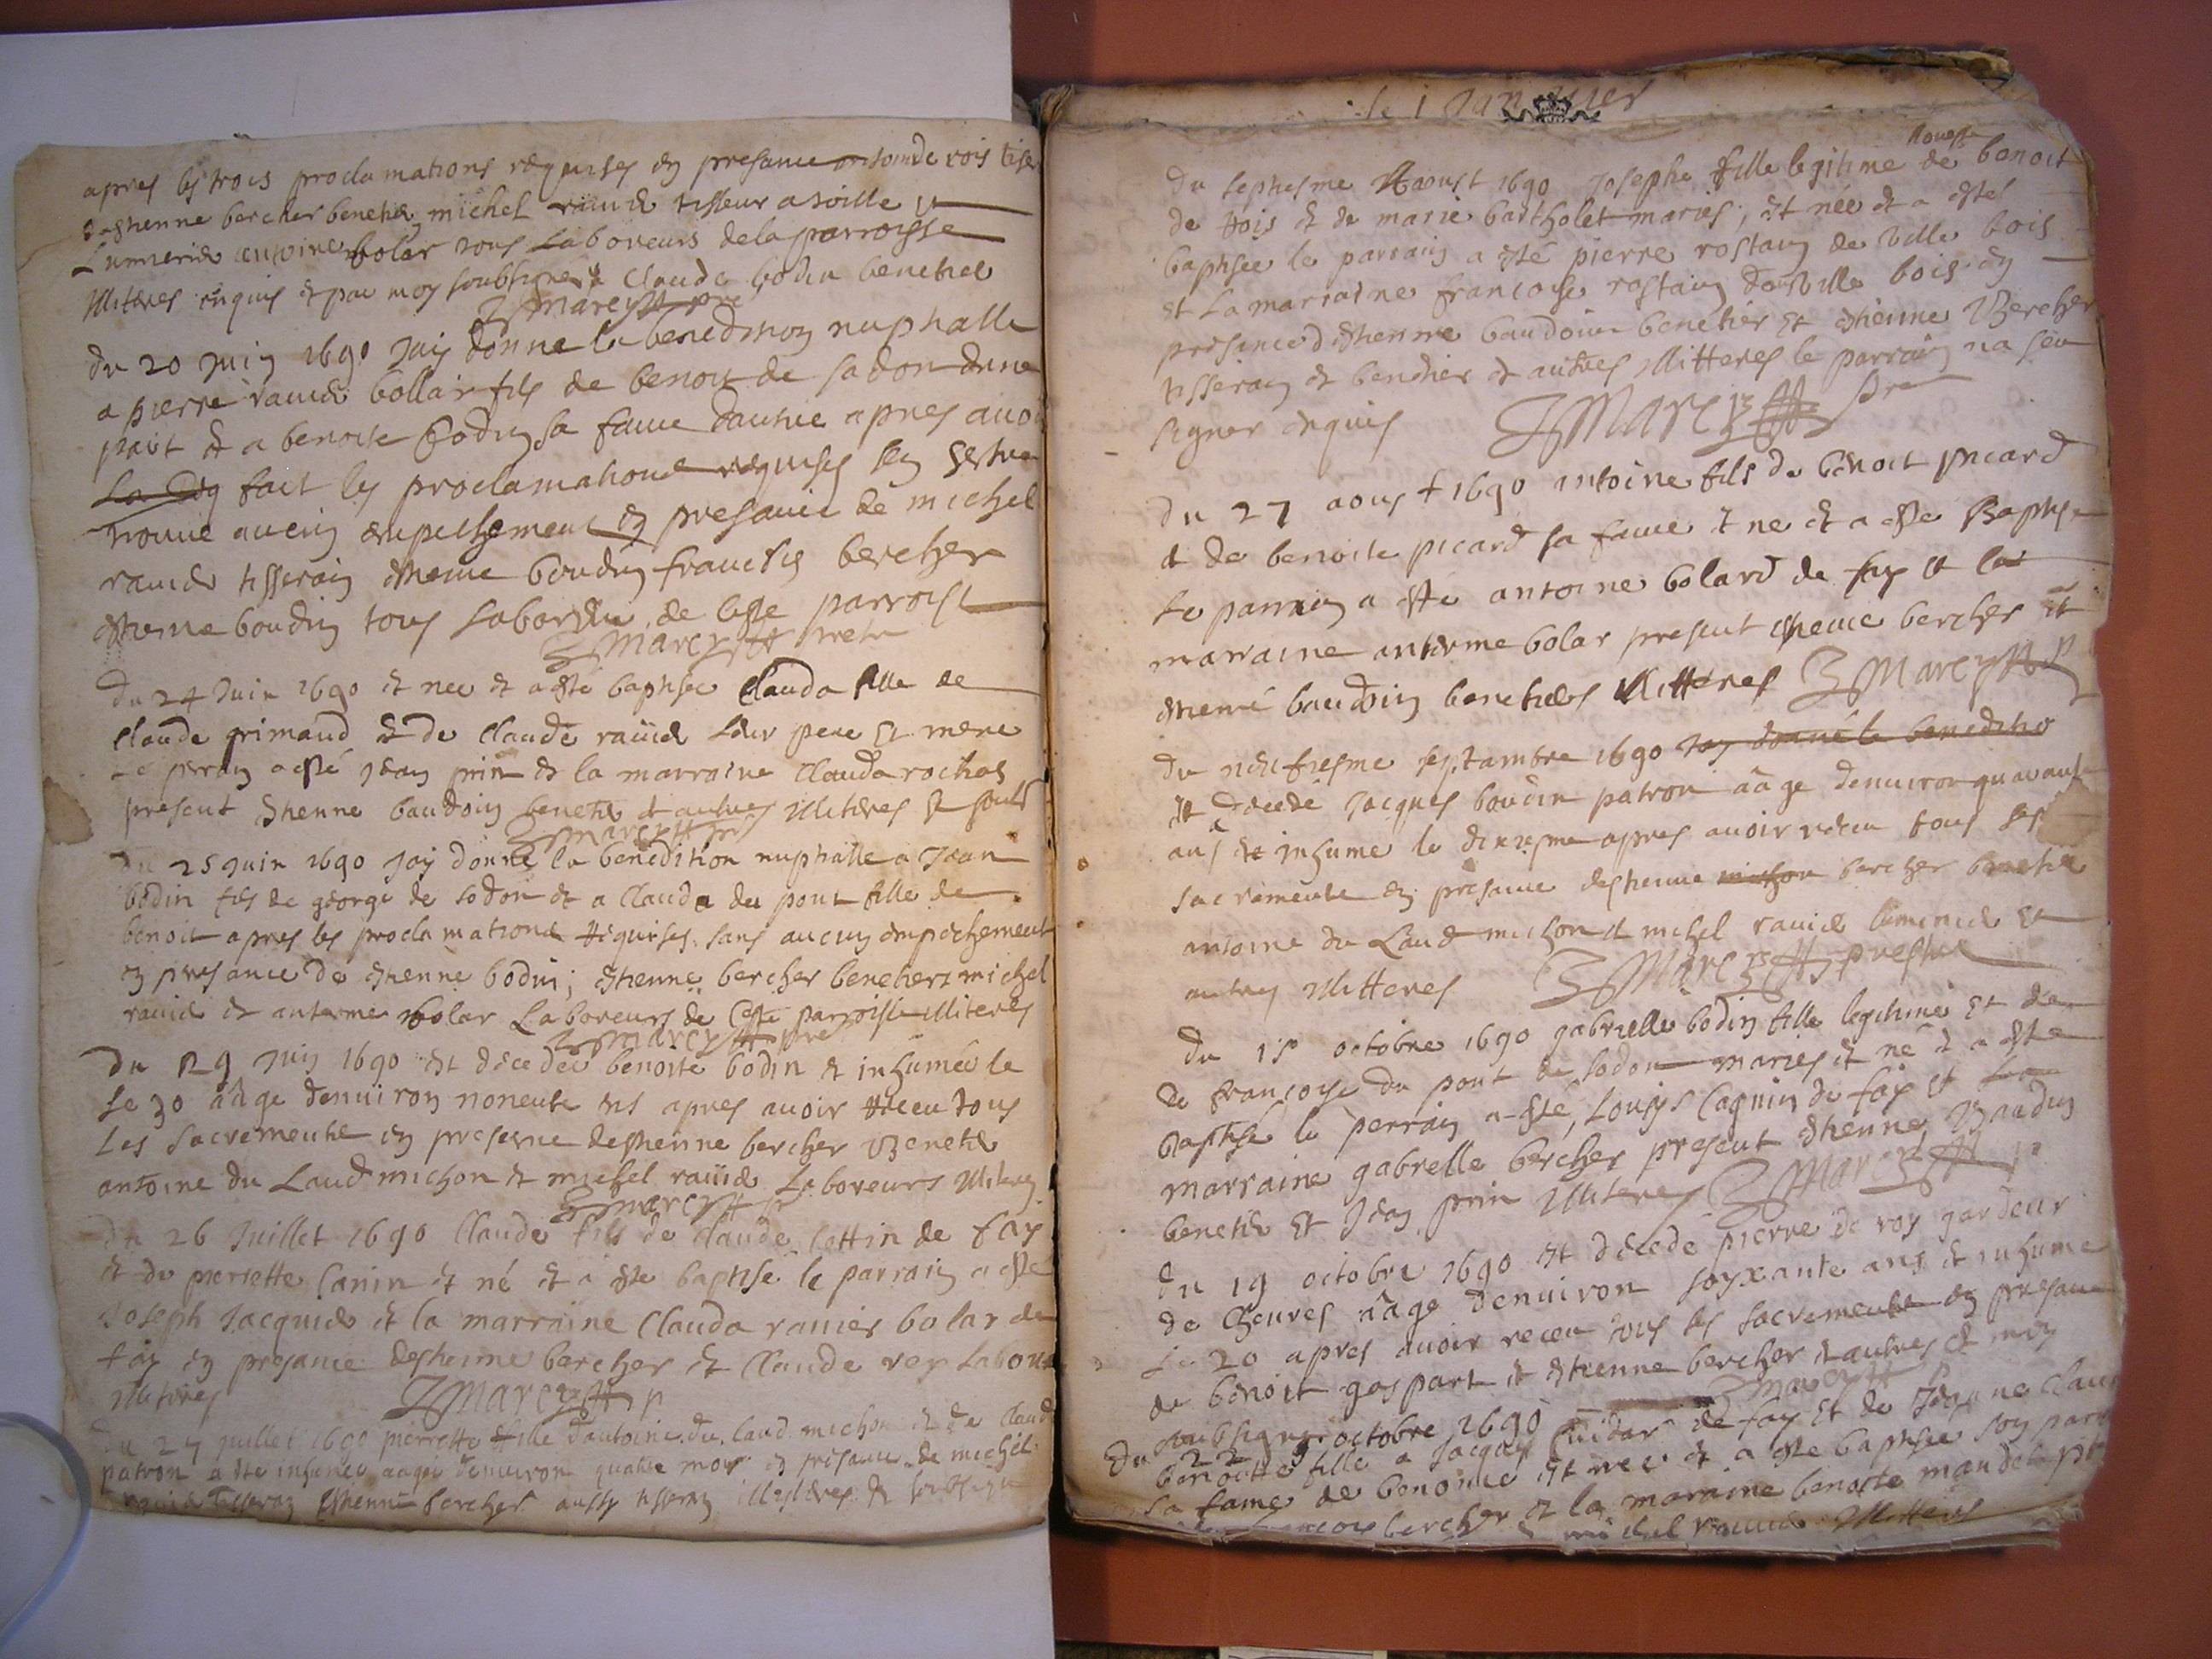 apres les trois proclamations requises en presance
destienne bercher benetier michel rauier tisseur
antoine bolar tous Laboreurs de la parroisse
illiteres enquis et par moy soubsigné Claude bodin benetier
JMarcy pre
du 20 juin 1690 jay donné la benediction nuptialle
a pierre rauier bollar fils de benoit de sadon dune
part et a benoite bodin sa fame dautre apres auoir
fait les proclamations requises sen estre
trouué aucun empeschement en presance de michel
rauier tisseran etienne boudin francois bercher
etienne boudin tous de ceste parroisse
JMarcy pretre
du 24 Juin 1690 et nee et a esté baptisee Clauda fille de
Claude grimaud et de Claude rauier leur pere et mere
Le perrain a esté jean prin et la marraine Clauda rochas
present etienne baudoin benetier et autres illiteres
JMarcy pre
du 25 juin 1690 jay donné la benedition nuptialle a Jean
bodin fils de george de sodon et a Clauda du pont fille de
benoit apres les proclamations requises sans aucun empechement
en presance de etienne bodin ; etienne bercher benetiers michel
rauier et antoine bolar Laboreurs de ceste parroisse illiteres
JMarcy pre
du 29 juin 1690 est decedee benoite bodin et inhumée le
le 30 aâge denuiron nonente ans apres auoir receu tous
les sacremente en presance destienne bercher benetier
antoine du Laud michon et michel rauier Laboreurs illiteres
JMarcy p
du 26 Juillet 1690 Claude fils de Claude Cettin de fay
et de pierrette Canin et né et a esté baptisé le parrain a esté
Joseph Jacquier et la marraine Clauda rauier bolar de
fay en presance destienne bercher et Claude rey Laboureurs
illiteres JMarcy p
du 27 juillet 1690 pierrette fille dantoine du laud michon et de Claude
patron a esté inhumee aagee denuiron quatre mois en presance de michel
rauier tisseran etienne bercher aussy tisseran illiteres et soubsigne
le 1 Januier
du septiesme Aoust 1690 Josephe fille legitime de benoit
de rois et de marie bartholet maries, et née et a esté
baptisee le parrain a esté pierre rostain de Ville bois
et La marraine francoise rostain de Ville bois en
presance detienne baudoin benetier et etienne Bercher
tisseran et benetier et autres illitteres le parrain na sceu
signer enquis JMarcy pre
du 27 aoust 1690 antoine fils de benoit picard
et de benoite picard sa fame et ne et a esté Baptise
Le parrain a esté antoine bolard de fay et la
marraine antoinne bolar present etienne bercher et
etienne baudoin benetiers illitteres JMarcy p
du neufiesme septambre 1690 jay donné la benedictio
et decedé Jacques boudin patron aâge denuiron quarante
ans et inhume le dixiesme apres auoir receu tous les
sacremente en presance destienne michon bercher benetier
antoine du Laud michon et michel rauier et
autres illitteres JMarcy prestre
du 15 octobre 1690 gabrielle bodin fille legitime et de
de francoise du pont de sodon maries et né et a esté
Baptisé le perrain a esté, Louys Cagnin de fay et La
marraine gabrielle bercher present etienne Baudin
benetier et Jean prin illiteres JMarcy p
du 19 octobre 1690 est decedé pierre de roy gardeur
de cheures aâge denuiron soyxante ans et inhume
Le 20 apres auoir receu tous les sacremente en presance
de benoit gaspart et etienne bercher et autres et moy
soubsigne JMarcy p
du 22 octobre 1690
benoitte fille a Jacques Cuidar de fay et de Jeanne
sa fame de benonce et nee et a esté baptisee son parrain
francois bercher et la maraine benoite mandela
michel rauier illitteres